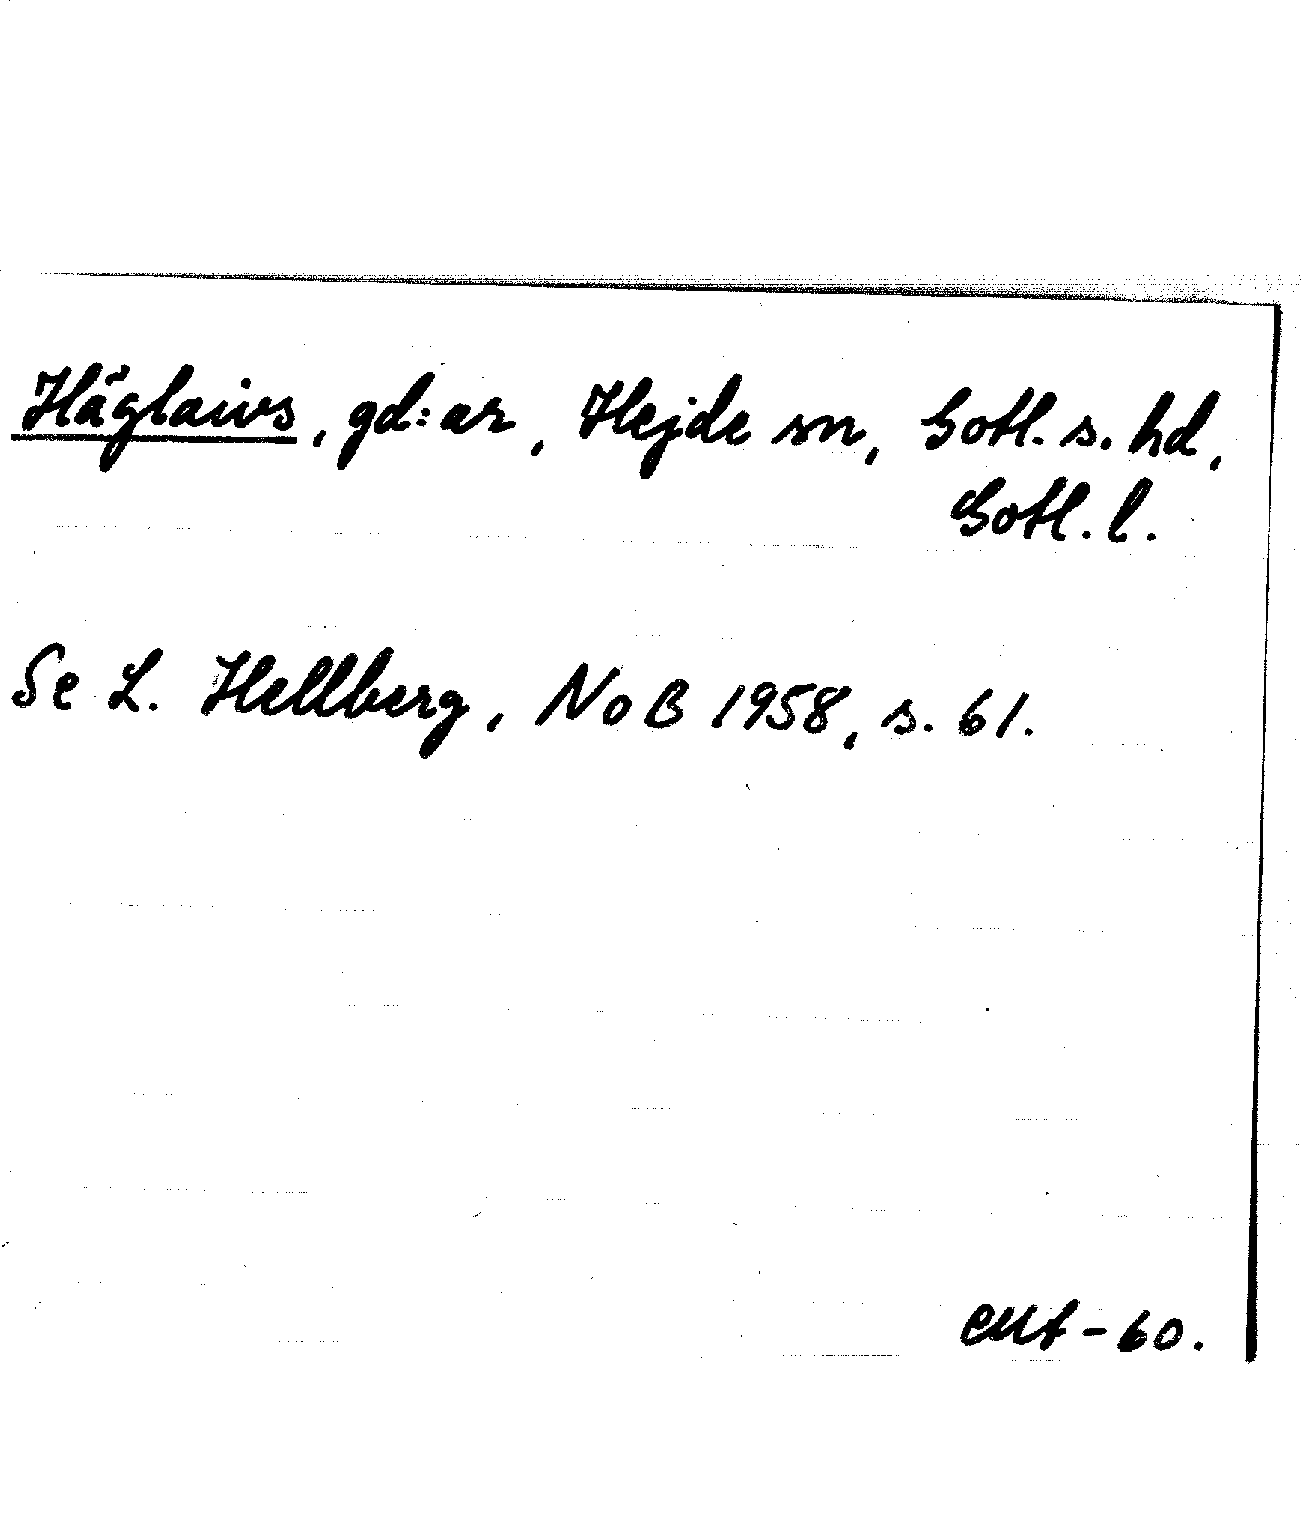 Häglaivs, gd:ar, Hejde sn, Gotl. s. hd,
Gotl. l.
Se L. Hellberg, NoB 1958, s. 61.
-60.